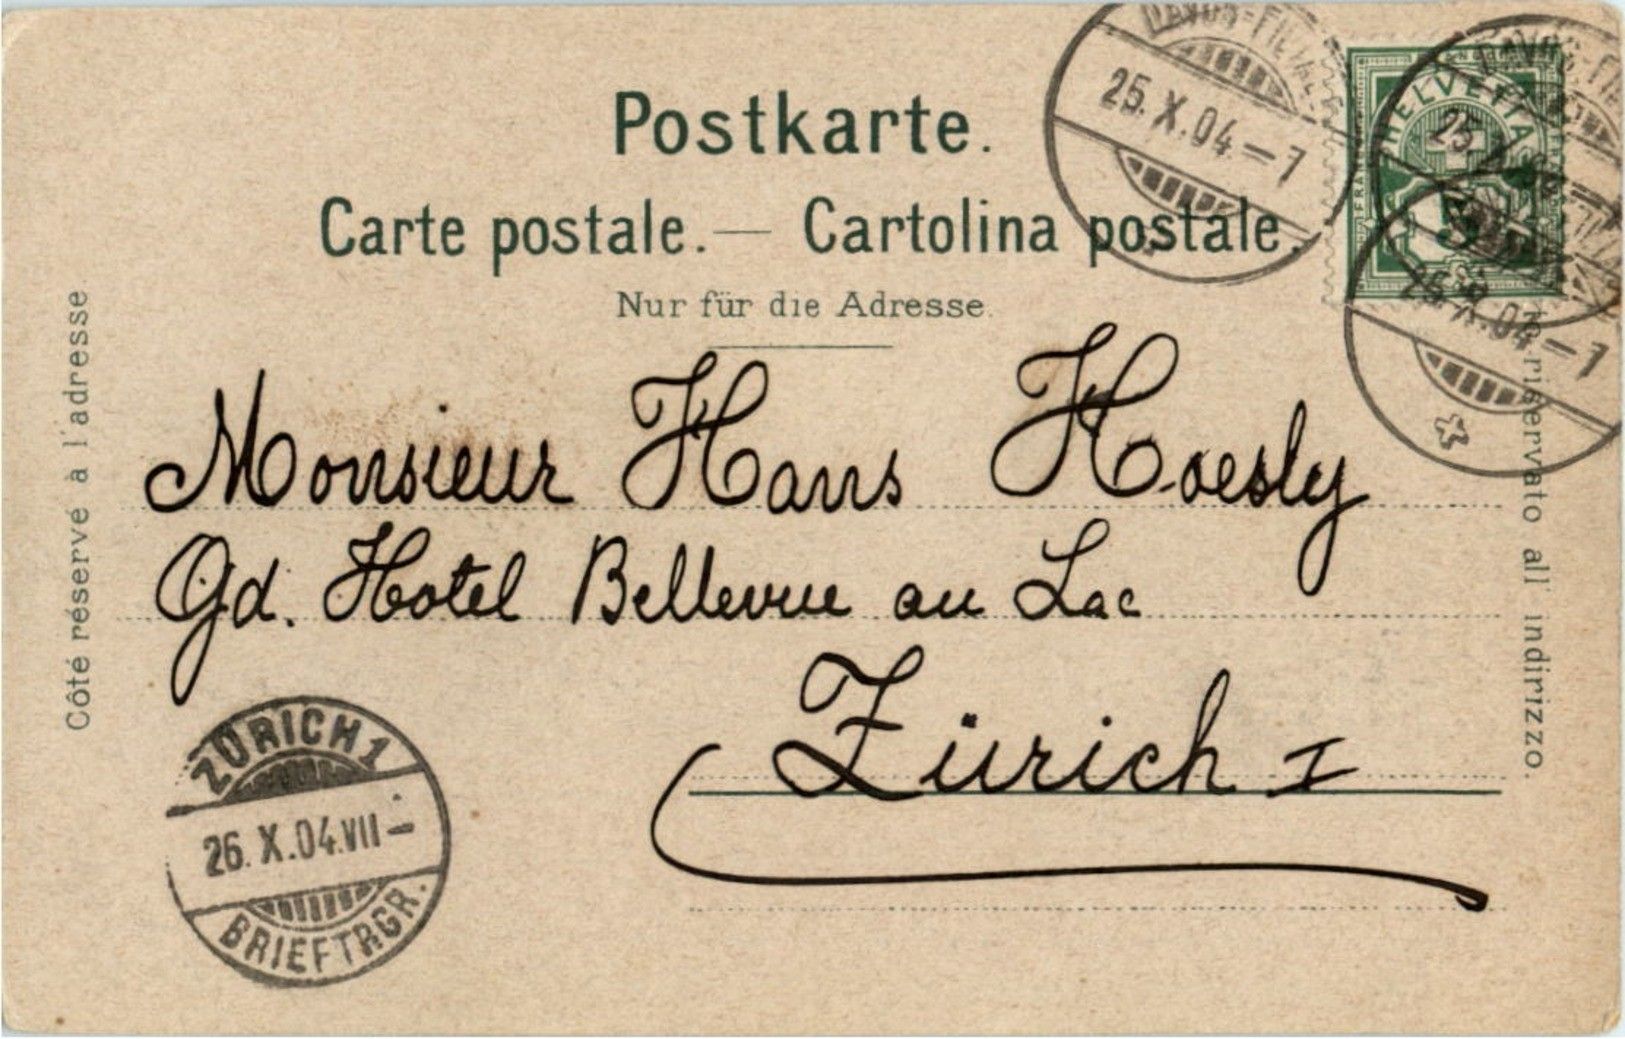 Postkarte.
Carte postale. — Cartolina postale.
Nur für die Adresse.
Côté réservé à l'adresse
riservato all' indirizzo.
25. X. 04 – 7
HELVETIA
FRANCO
5
25. X. 04 – 7
Monsieur Hans Hoesly
Gd. Hotel Bellevue au Lac
Zürich I
ZÜRICH 1
26. X. 04. VII –
BRIEFTRGR.